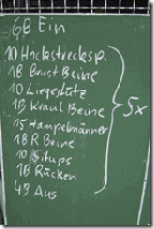 6B Ein
10 Hockstrecksp.
1B Brust Beine
10 Liegestütz
1B Kraul Beine
15 Hampelmänner
1B R Beine
10 Situps
1B Rücken
4B Aus
5x